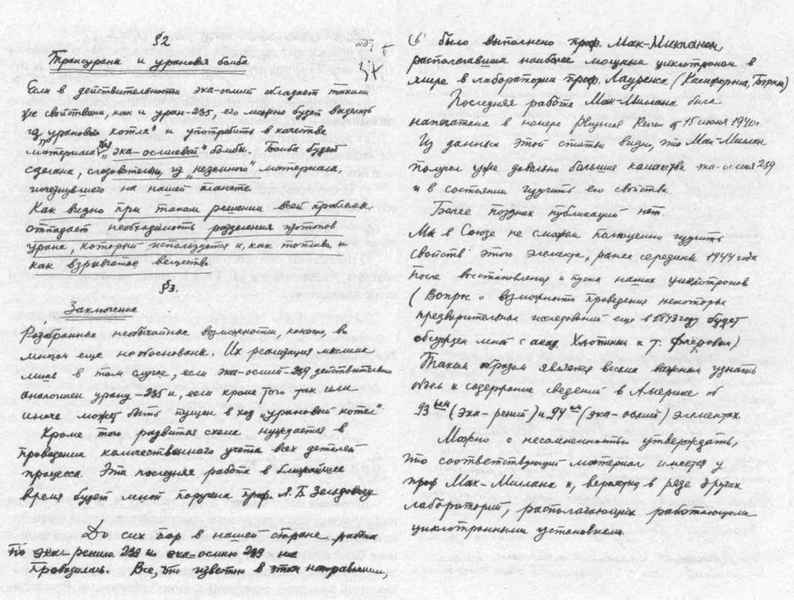 §2
Трансураны и урановая бомба
Если в действительности эка-осмий обладает такими
же свойствами, как и уран-235, его можно будет выделить
из „уранового котла“ и употребить в качестве
материала для „эка-осмиевой“ бомбы. Бомба будет
сделана, следовательно, из „неземного“ материала,
исчезнувшего на нашей планете.
Как видно при таком решении всей проблемы
отпадает необходимость разделения изотопов
урана, который используется и, как топливо и
как взрывчатое вещество.
§3.
Заключение
Разобранные необычайные возможности, конечно, во
многом ещё необоснованы. Их реализация мыслима
лишь в том случае, если эка-осмий-239 действительно
аналогичен урану-235 и, если кроме того так или
иначе может быть пущен в ход „урановый котёл“
Кроме того развитая схема нуждается в
проведении количественного учёта всех деталей
процесса. Эта последняя работа в ближайшее
время будет мной поручена проф. Я. Б. Зельдовичу
До сих пор в нашей стране работа
по эка-рению 239 и эка-осмию 239 не
проводилась. Все, что известно в этом направлении,
было выполнено проф. Мак-Милланом,
располагавшим наиболее мощным циклотроном в
мире в лаборатории проф. Лауренса (Калифорния, Беркли)
Последняя работа Мак-Миллана была
напечатана в номере Physical Review от 15 июня 1940г.
Из данных этой статьи видно, что Мак-Миллан
получил уже довольно большие количества эка-осмия 239
и в состоянии изучить его свойства
Более поздних публикаций нет.
Мы в Союзе не сможем полноценно изучить
свойств этого элемента, ранее середины 1944 года
после восстановления и пуска наших циклотронов
(Вопрос о возможности проведения некоторых
предварительных исследований ещё в 1943 году будет
обсуждён мной с акад. Хлопиным и т. Флёровым)
Таким образом является весьма важным узнать
объём и содержание сведений в Америке об
93ем (эка-рений) и 94ом (эка-осмий) элементах.
Можно с несомненностью утверждать,
что соответствующий материал имеется у
проф Мак-Миллана и, вероятно, в ряде других
лабораторий, располагающих работающими
циклотронными установками.